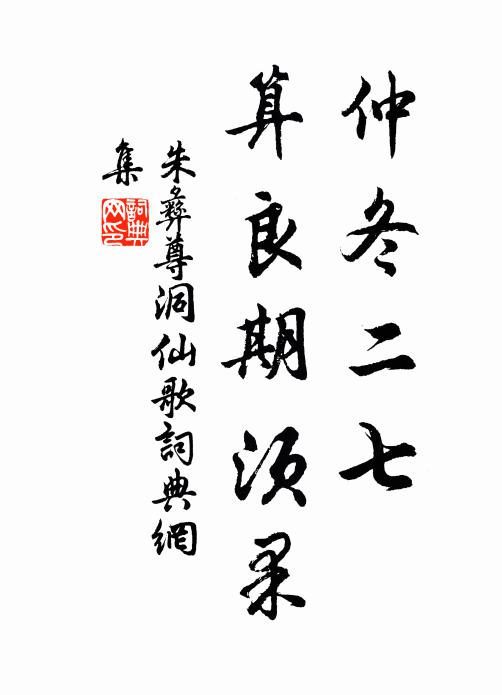 仲冬二七
算良期須果
朱彝尊洞仙歌詞典網
集
詞典網印